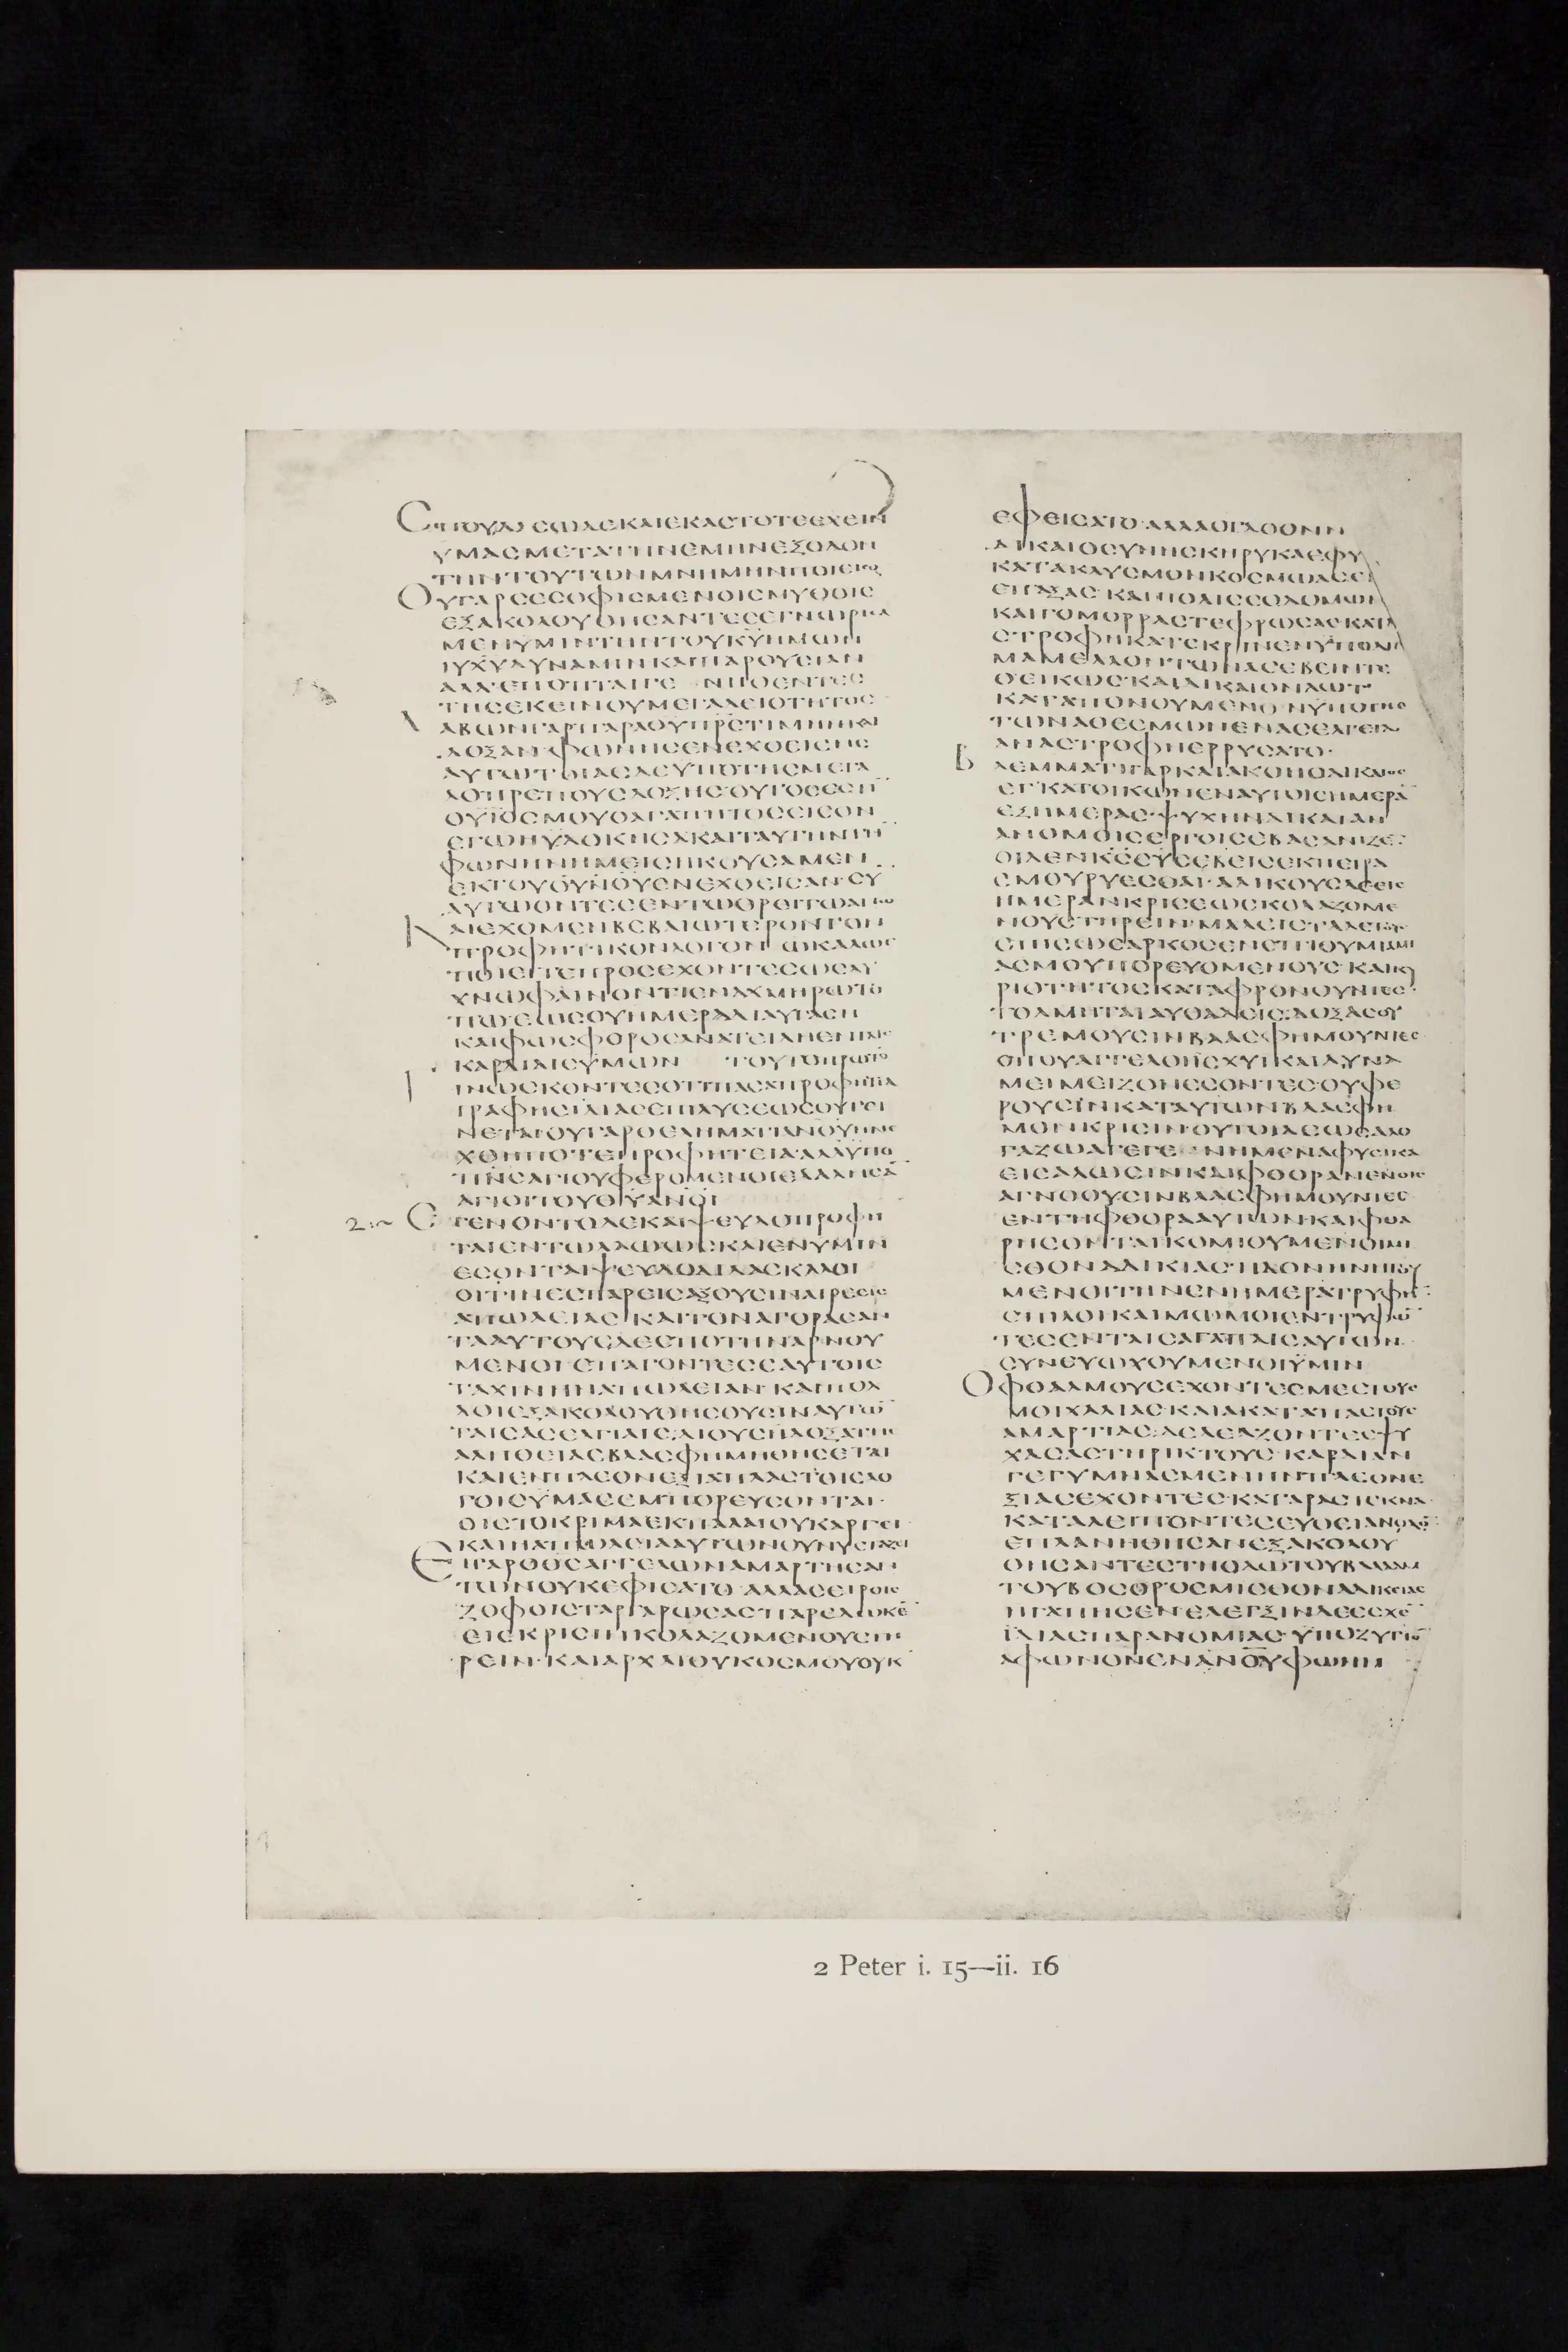 CΠΟΥΔΑCΩΔΕΚΑΙΕΚΑCΤΟΤΕΕΧΕΙΝ
ΥΜΑCΜΕΤΑΤΗΝΕΜΗΝΕΞΟΔΟΝ
ΤΗΝΤΟΥΤΩΝΜΝΗΜΗΝΠΟΙΕΙCΘΑΙ
ΟΥΓΑΡCΕCΟΦΙCΜΕΝΟΙCΜΥΘΟΙC
ΕΞΑΚΟΛΟΥΘΗCΑΝΤΕCΕΓΝΩΡΙCΑ
ΜΕΝΥΜΙΝΤΗΝΤΟΥΚΥΗΜΩΝ
ΙΥΧΥΔΥΝΑΜΙΝΚΑΙΠΑΡΟΥCΙΑΝ
ΑΛΛΕΠΟΠΤΑΙΓΕ ΝΗΘΕΝΤΕC
ΤΗCΕΚΕΙΝΟΥΜΕΓΑΛΕΙΟΤΗΤΟC
ΛΑΒΩΝΓΑΡΠΑΡΑΘΥΠΡCΤΙΜΗΝΚΑΙ
ΔΟΞΑΝ ΦΩΝΗCΕΝΕΧΘΕΙCΗC
ΑΥΤΩΤΟΙΑCΔΕΥΠΟΤΗCΜΕΓΑ
ΛΟΠΡΕΠΟΥCΔΟΞΗC ΟΥΤΟCΕCΤΙΝ
ΟΥΙΟCΜΟΥΟΑΓΑΠΗΤΟCΕΙCΟΝ
ΕΓΩΗΥΔΟΚΗCΑΚΑΙΤΑΥΤΗΝΤΗΝ
ΦΩΝΗΝΗΜΕΙCΗΚΟΥCΑΜΕΝ
ΕΚΤΟΥΟΥΝΟΥΕΝΕΧΘΕΙCΑΝ CΥ
ΑΥΤΩΟΝΤΕCΕΝΤΩΟΡΕΙΤΩΑΓΙΩ
ΚΑΙΕΧΟΜΕΝΒΕΒΑΙΩΤΕΡΟΝΤΟΝ
ΠΡΟΦΗΤΙΚΟΝΛΟΓΟΝ ΩΚΑΛΩC
ΠΟΙΕΙΤΕΠΡΟCΕΧΟΝΤΕCΩCΛΥ
ΧΝΩΦΑΙΝΟΝΤΙΕΝΑΥΧΜΗΡΩΤΟ
ΠΩΕΩCΟΥΗΜΕΡΑΔΙΑΥΓΑCΗ
ΚΑΙΦΩCΦΟΡΟCΑΝΑΤΕΙΛΗΕΝΤΑΙC
ΚΑΡΔΙΑΙCΥΜΩΝ ΤΟΥΤΟΠΡΩΤΟ
ΓΙΝΩCΚΟΝΤΕCΟΤΙΠΑCΑΠΡΟΦΗΤΙΑ
ΓΡΑΦΗCΙΔΙΑCΕΠΙΛΥCΕΩCΟΥΓΕΙ
ΝΕΤΑΙΟΥΓΑΡΘΕΛΗΜΑΤΙΑΝΟΥΗΝΕ
ΧΘΗΠΟΤΕΠΡΟΦΗΤΕΙΑΑΛΛΥΠΟ
ΠΝCΑΓΙΟΥΦΕΡΟΜΕΝΟΙΕΛΑΛΗCΑ
ΑΓΙΟΙΤΟΥΘΥΑΝΟΙ
2:1~ ΕΓΕΝΟΝΤΟΔΕΚΑΙΨΕΥΔΟΠΡΟΦΗ
ΤΑΙΕΝΤΩΛΑΩΩCΚΑΙΕΝΥΜΙΝ
ΕCΟΝΤΑΙΨΕΥΔΟΔΙΔΑCΚΑΛΟΙ
ΟΙΤΙΝΕCΠΑΡΕΙCΑΞΟΥCΙΝΑΙΡΕCΕΙC
ΑΠΩΛΕΙΑC ΚΑΙΤΟΝΑΓΟΡΑCΑΝ
ΤΑΑΥΤΟΥCΔΕCΠΟΤΗΝΑΡΝΟΥ
ΜΕΝΟΙ ΕΠΑΓΟΝΤΕCΕΑΥΤΟΙC
ΤΑΧΙΝΗΝΑΠΩΛΕΙΑΝ ΚΑΙΠΟΛ
ΛΟΙΕΞΑΚΟΛΟΥΘΗCΟΥCΙΝΑΥΤΩ
ΤΑΙCΑCΕΛΓΙΑΙC ΔΙΟΥCΗΔΟΞΑΤΗC
ΑΛΗΘΕΙΑCΒΛΑCΦΗΜΗΘΗCΕΤΑΙ
ΚΑΙΕΝΠΛΕΟΝΕΞΙΑΠΛΑCΤΟΙCΛΟ
ΓΟΙCΥΜΑCΕΜΠΟΡΕΥCΟΝΤΑΙ
ΟΙCΤΟΚΡΙΜΑΕΚΠΑΛΑΙΟΥΚΑΡΓΕΙ
ΚΑΙΗΑΠΩΛΕΙΑΑΥΤΩΝΟΥΝΥCΤΑΖΕΙ
ΕΙΓΑΡΟΘCΑΓΓΕΛΩΝΑΜΑΡΤΗCΑΝ
ΤΩΝΟΥΚΕΦΙCΑΤΟ ΑΛΛΑCΕΙΡΟΙC
ΖΟΦΟΙCΤΑΡΤΑΡΩCΑCΠΑΡΕΔΩΚΕ
ΕΙCΚΡΙCΙΝΚΟΛΑΖΟΜΕΝΟΥCΤΗ
ΡΕΙΝ ΚΑΙΑΡΧΑΙΟΥΚΟCΜΟΥΟΥΚ
ΕΦΕΙCΑΤΟ ΑΛΛΑΟΓΔΟΟΝΝ
ΔΙΚΑΙΟCΥΝΗCΚΗΡΥΚΑΕΦΥ
ΚΑΤΑΚΛΥCΜΟΝΚΟCΜΩΑCΕ
ΕΠΑΞΑC ΚΑΙΠΟΛΙCCΟΔΟΜΩΝ
ΚΑΙΓΟΜΟΡΡΑCΤΕΦΡΩCΑCΚΑΤΑ
CΤΡΟΦΗΚΑΤΕΚΡΙΝΕΝΥΠΟΔΙ
ΜΑΜΕΛΛΟΝΤΩΝΑCΕΒΕΙΝΤΕ
ΘΕΙΚΩC ΚΑΙΔΙΚΑΙΟΝΛΩΤ
ΚΑΤΑΠΟΝΟΥΜΕΝΟΝΥΠΟΤΗC
ΤΩΝΑΘΕCΜΩΝΕΝΑCΕΛΓΕΙΑ
ΑΝΑCΤΡΟΦΗCΕΡΡΥCΑΤΟ
ΒΛΕΜΜΑΤΙΓΑΡΚΑΙΑΚΟΗΟΔΙΚΑΙΟC
ΕΓΚΑΤΟΙΚΩΝΕΝΑΥΤΟΙCΗΜΕΡΑ
ΕΞΗΜΕΡΑC ΨΥΧΗΝΔΙΚΑΙΑΝ
ΑΝΟΜΟΙCΕΡΓΟΙCΕΒΑCΑΝΙΖΕ
ΟΙΔΕΝΚCΕΥCΕΒΕΙCΕΚΠΕΙΡΑ
CΜΟΥΡΥΕCΘΑΙ ΑΔΙΚΟΥCΔΕΕΙC
ΗΜΕΡΑΝΚΡΙCΕΩCΚΟΛΑΖΟΜΕ
ΝΟΥCΤΗΡΕΙΝ ΜΑΛΙCΤΑΔΕΤΟΥC
ΟΠΙCΩCΑΡΚΟCΕΝΕΠΙΘΥΜΙΑΜΙ
ΑCΜΟΥΠΟΡΕΥΟΜΕΝΟΥC ΚΑΙΚΥ
ΡΙΟΤΗΤΟCΚΑΤΑΦΡΟΝΟΥΝΤΕC
ΤΟΛΜΗΤΑΙΑΥΘΑΔΕΙC ΔΟΞΑCΟΥ
ΤΡΕΜΟΥCΙΝΒΛΑCΦΗΜΟΥΝΤΕC
ΟΠΟΥΑΓΓΕΛΟΙΙCΧΥΙΚΑΙΔΥΝΑ
ΜΕΙΜΕΙΖΟΝΕCΟΝΤΕC ΟΥΦΕ
ΡΟΥCΙΝΚΑΤΑΥΤΩΝΒΛΑCΦΗ
ΜΟΝΚΡΙCΙΝΟΥΤΟΙΔΕΩCΑΛΟ
ΓΑΖΩΑΓΕΓΕ ΝΗΜΕΝΑΦΥCΙΚΑ
ΕΙCΑΛΩCΙΝΚΑΙΦΘΟΡΑΝΕΝΟΙC
ΑΓΝΟΟΥCΙΝΒΛΑCΦΗΜΟΥΝΤΕC
ΕΝΤΗΦΘΟΡΑΑΥΤΩΝΚΑΙΦΘΑ
ΡΗCΟΝΤΑΙΚΟΜΙΟΥΜΕΝΟΙΜΙ
CΘΟΝΑΔΙΚΙΑC ΗΔΟΝΗΝΗΓΟΥ
ΜΕΝΟΙΤΗΝΕΝΗΜΕΡΑΤΡΥΦΗ
CΠΙΛΟΙΚΑΙΜΩΜΟΙΕΝΤΡΥΦΩ
ΤΕCΕΝΤΑΙCΑΓΑΠΑΙCΑΥΤΩΝ
CΥΝΕΥΩΧΟΥΜΕΝΟΙΥΜΙΝ
ΟΦΘΑΛΜΟΥCΕΧΟΝΤΕCΜΕCΤΟΥC
ΜΟΙΧΑΛΙΑCΚΑΙΑΚΑΤΑΠΑCΤΟΥC
ΑΜΑΡΤΙΑC ΔΕΛΕΑΖΟΝΤΕCΨΥ
ΧΑCΑCΤΗΡΙΚΤΟΥC ΚΑΡΔΙΑΝ
ΓΕΓΥΜΝΑCΜΕΝΗΝΠΛΕΟΝΕ
ΞΙΑCΕΧΟΝΤΕC ΚΑΤΑΡΑCΤΕΚΝΑ
ΚΑΤΑΛΕΙΠΟΝΤΕCΕΥΘΕΙΑΝΟΔΟ
ΕΠΛΑΝΗΘΗCΑΝΕΞΑΚΟΛΟΥ
ΘΗCΑΝΤΕCΤΗΟΔΩΤΟΥΒΑΛΑΑΜ
ΤΟΥΒΟCΟΡΟCΜΙCΘΟΝΑΔΙΚΕΙΑC
ΗΓΑΠΗCΕΝ ΕΛΕΓΞΙΝΔΕΕCΧΕ
ΙΔΙΑCΠΑΡΑΝΟΜΙΑC ΥΠΟΖΥΓΙΟ
ΑΦΩΝΟΝΕΝΑΝΟΥΦΩΝΗ
2 Peter i. 15—ii. 16